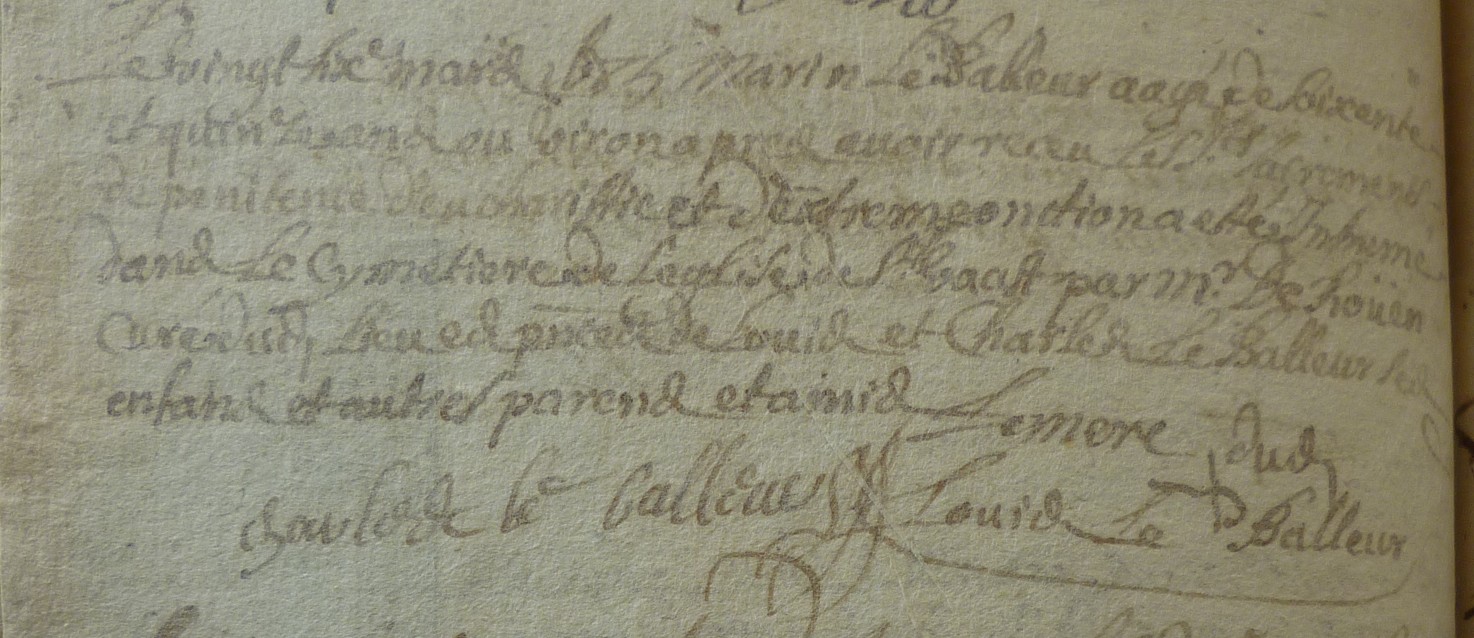 Le vingt six mars Marin Le Balleur aagé de soixente
et quinze ans ou viron apres avoir receu les Sts sacrements
de penitence d'eucharistie et d'extreme onction a esté Inhumé
dans Le Cymetiere de Leglise de St Vaast par Mr De Roüen
Curé dud lieu es pnces de Louis et Charles Le Balleur ses
enfans et autres parens et amis
charles le balleur Louis Le Balleur